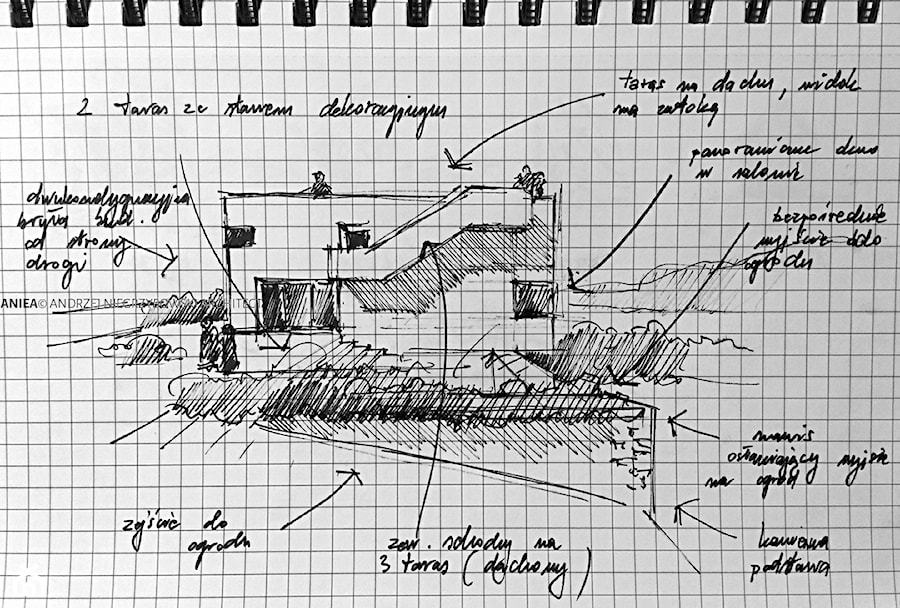 2 taras ze stawem dekoracyjnym
taras na dachu, widok
na zatokę
panoramiczne okno
w salonie
dwukondygnacyjna
bryła bud.
od strony
drogi
bezpośrednie
wyjście do
ogrodu
ANIEA© ANDRZEJ NIEGRZYBOWSKI ARCHITECT
nawis
osłaniający wyjście
na ogród
zejście do
ogrodu
zew. schody na
3 taras (dachowy)
kamienna
podstawa